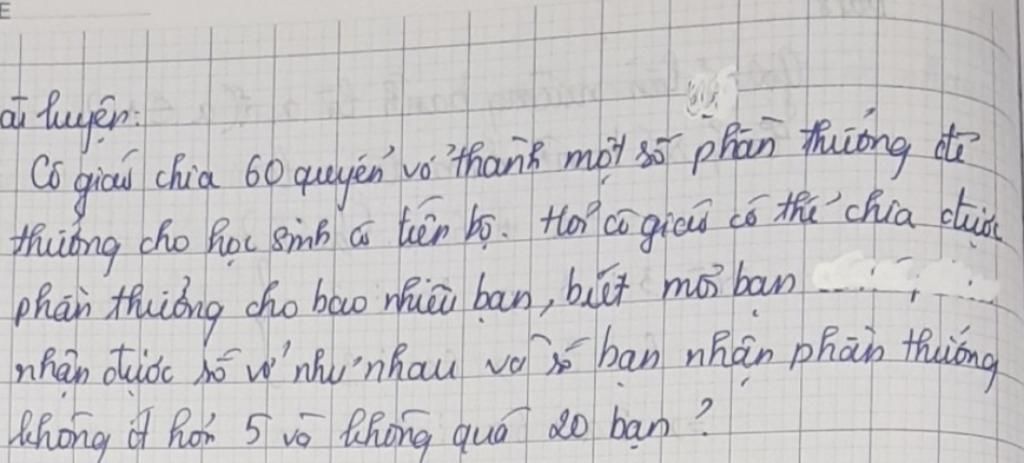 ài luyện:
Cô giáo chia 60 quyển vở thành một số phần thưởng để
thưởng cho học sinh có tiến bộ. Hỏi cô giáo có thể chia được
phần thưởng cho bao nhiêu bạn, biết mỗi bạn
nhận được số vở như nhau và số bạn nhận phần thưởng
không ít hơn 5 và không quá 20 bạn?